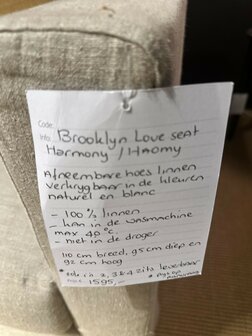 Code
Info. Brooklyn Love seat
Harmony / Haomy
Afneembare hoes linnen
verkrijgbaar in de kleuren
naturel en blanc
- 100 % linnen
- kan in de wasmachine
max 40°c
- niet in de droger
110 cm breed, 95 cm diep en
92 cm hoog
* ook in 2, 3 & 4 zits leverbaar
1595,- * Prijs op
aanvraag